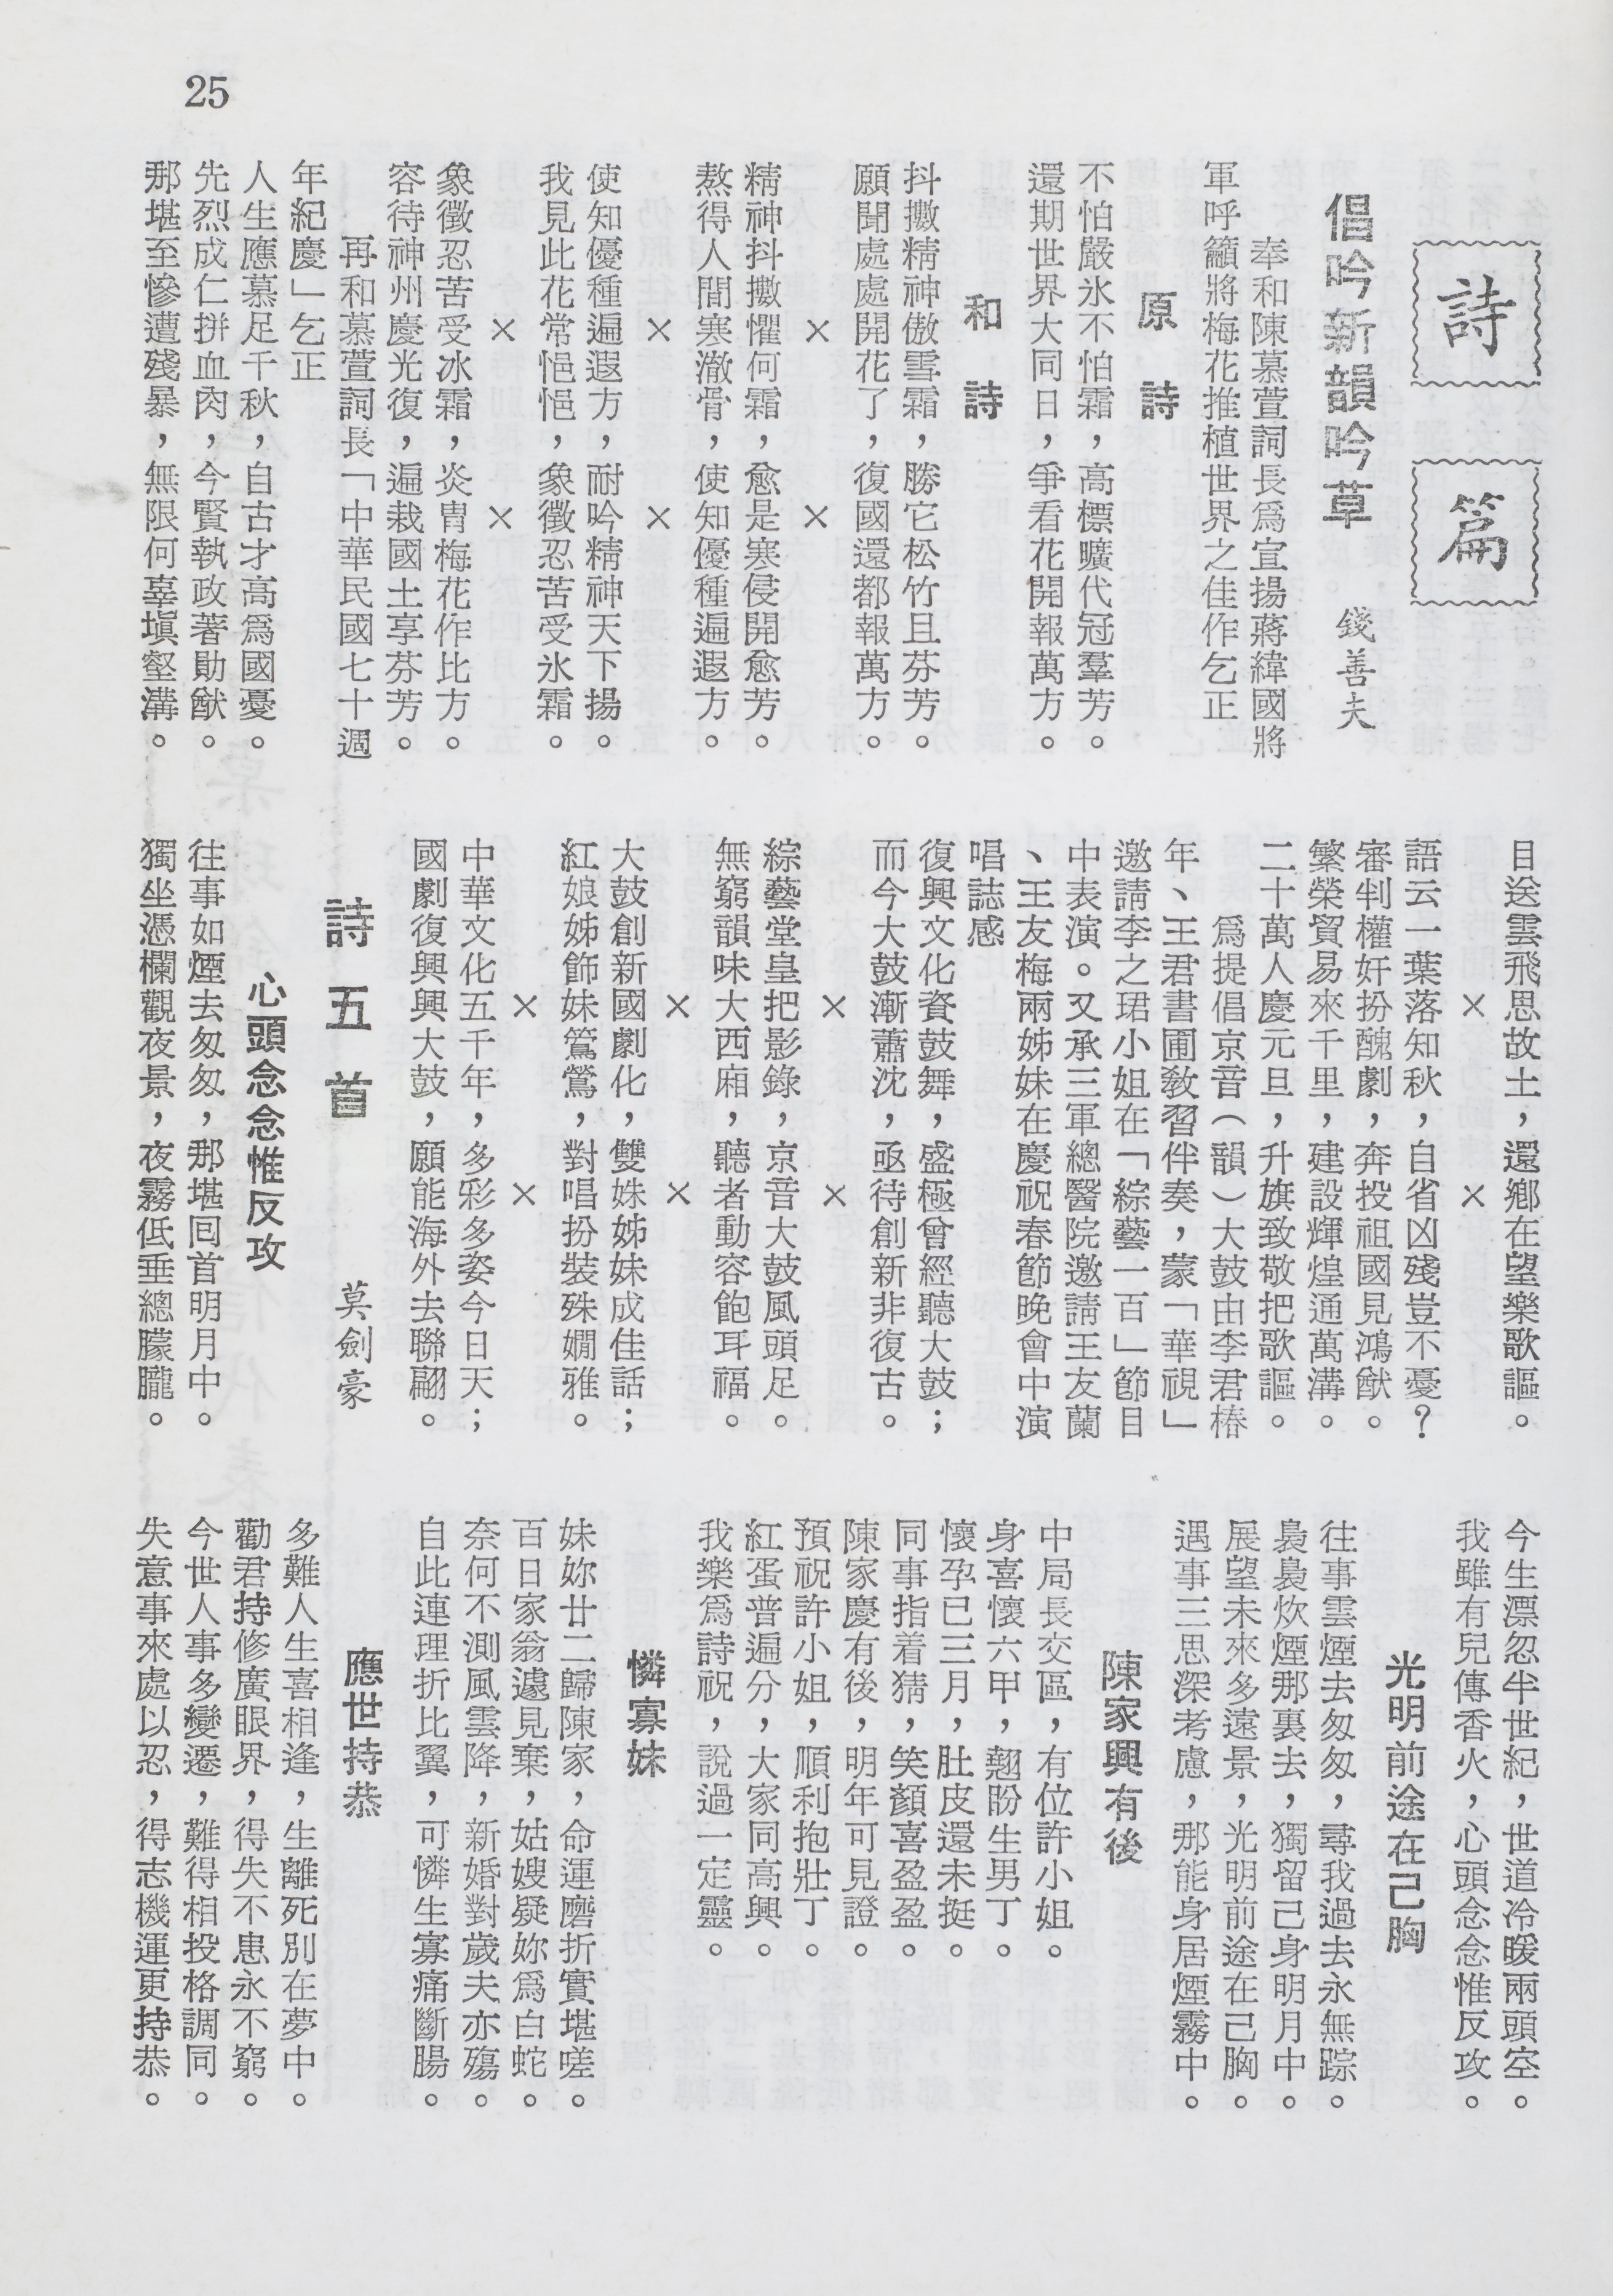 25
詩篇
倡吟新韻吟草　錢善夫
奉和陳慕萱詞長爲宣揚蔣緯國將
軍呼籲將梅花推植世界之佳作乞正
原詩
不怕嚴氷不怕霜，高標曠代冠羣芳。
還期世界大同日，爭看花開報萬方。
和詩
抖擻精神傲雪霜，勝它松竹且芬芳。
願聞處處開花了，復國還都報萬方。
×　×
精神抖擻懼何霜，愈是寒侵開愈芳。
熬得人間寒澈骨，使知優種遍遐方。
×　×
使知優種遍遐方，耐吟精神天下揚。
我見此花常悒悒，象徵忍苦受氷霜。
×　×
象徵忍苦受冰霜，炎冑梅花作比方。
容待神州慶光復，遍栽國土享芬芳。
再和慕萱詞長「中華民國七十週
年紀慶」乞正
人生應慕足千秋，自古才高爲國憂。
先烈成仁拼血肉，今賢執政著勛猷。
那堪至慘遭殘暴，無限何辜塡壑溝。
目送雲飛思故土，還鄉在望樂歌謳。
×　×
語云一葉落知秋，自省凶殘豈不憂？
審判權奸扮醜劇，奔投祖國見鴻猷。
繁榮貿易來千里，建設輝煌通萬溝。
二十萬人慶元旦，升旗致敬把歌謳。
爲提倡京音（韻）大鼓由李君椿
年、王君書圃敎習伴奏，蒙「華視」
邀請李之珺小姐在「綜藝一百」節目
中表演。又承三軍總醫院邀請王友蘭
、王友梅兩姊妹在慶祝春節晚會中演
唱誌感
復興文化資鼓舞，盛極曾經聽大鼓；
而今大鼓漸蕭沈，亟待創新非復古。
×　×
綜藝堂皇把影錄，京音大鼓風頭足。
無窮韻味大西廂，聽者動容飽耳福。
×　×
大鼓創新國劇化，雙姝姊妹成佳話；
紅娘姊飾妹鶯鶯，對唱扮裝殊嫺雅。
×　×
中華文化五千年，多彩多姿今日天；
國劇復興興大鼓，願能海外去聯翩。
詩五首　莫劍豪
心頭念念惟反攻
往事如煙去匆匆，那堪回首明月中。
獨坐憑欄觀夜景，夜霧低垂總朦朧。
今生漂忽半世紀，世道冷暖兩頭空。
我雖有兒傳香火，心頭念念惟反攻。
光明前途在己胸
往事雲煙去匆匆，尋我過去永無踪。
裊裊炊煙那裏去，獨留己身明月中。
展望未來多遠景，光明前途在己胸。
遇事三思深考慮，那能身居煙霧中。
陳家興有後
中局長交區，有位許小姐。
身喜懷六甲，翹盼生男丁。
懷孕已三月，肚皮還未挺。
同事指着猜，笑顏喜盈盈。
陳家慶有後，明年可見證。
預祝許小姐，順利抱壯丁。
紅蛋普遍分，大家同高興。
我樂爲詩祝，說過一定靈。
憐寡妹
妹妳廿二歸陳家，命運磨折實堪嗟。
百日家翁遽見棄，姑嫂疑妳爲白蛇。
奈何不測風雲降，新婚對歲夫亦殤。
自此連理折比翼，可憐生寡痛斷腸。
應世持恭
多難人生喜相逢，生離死別在夢中。
勸君持修廣眼界，得失不患永不窮。
今世人事多變遷，難得相投格調同。
失意事來處以忍，得志機運更持恭。